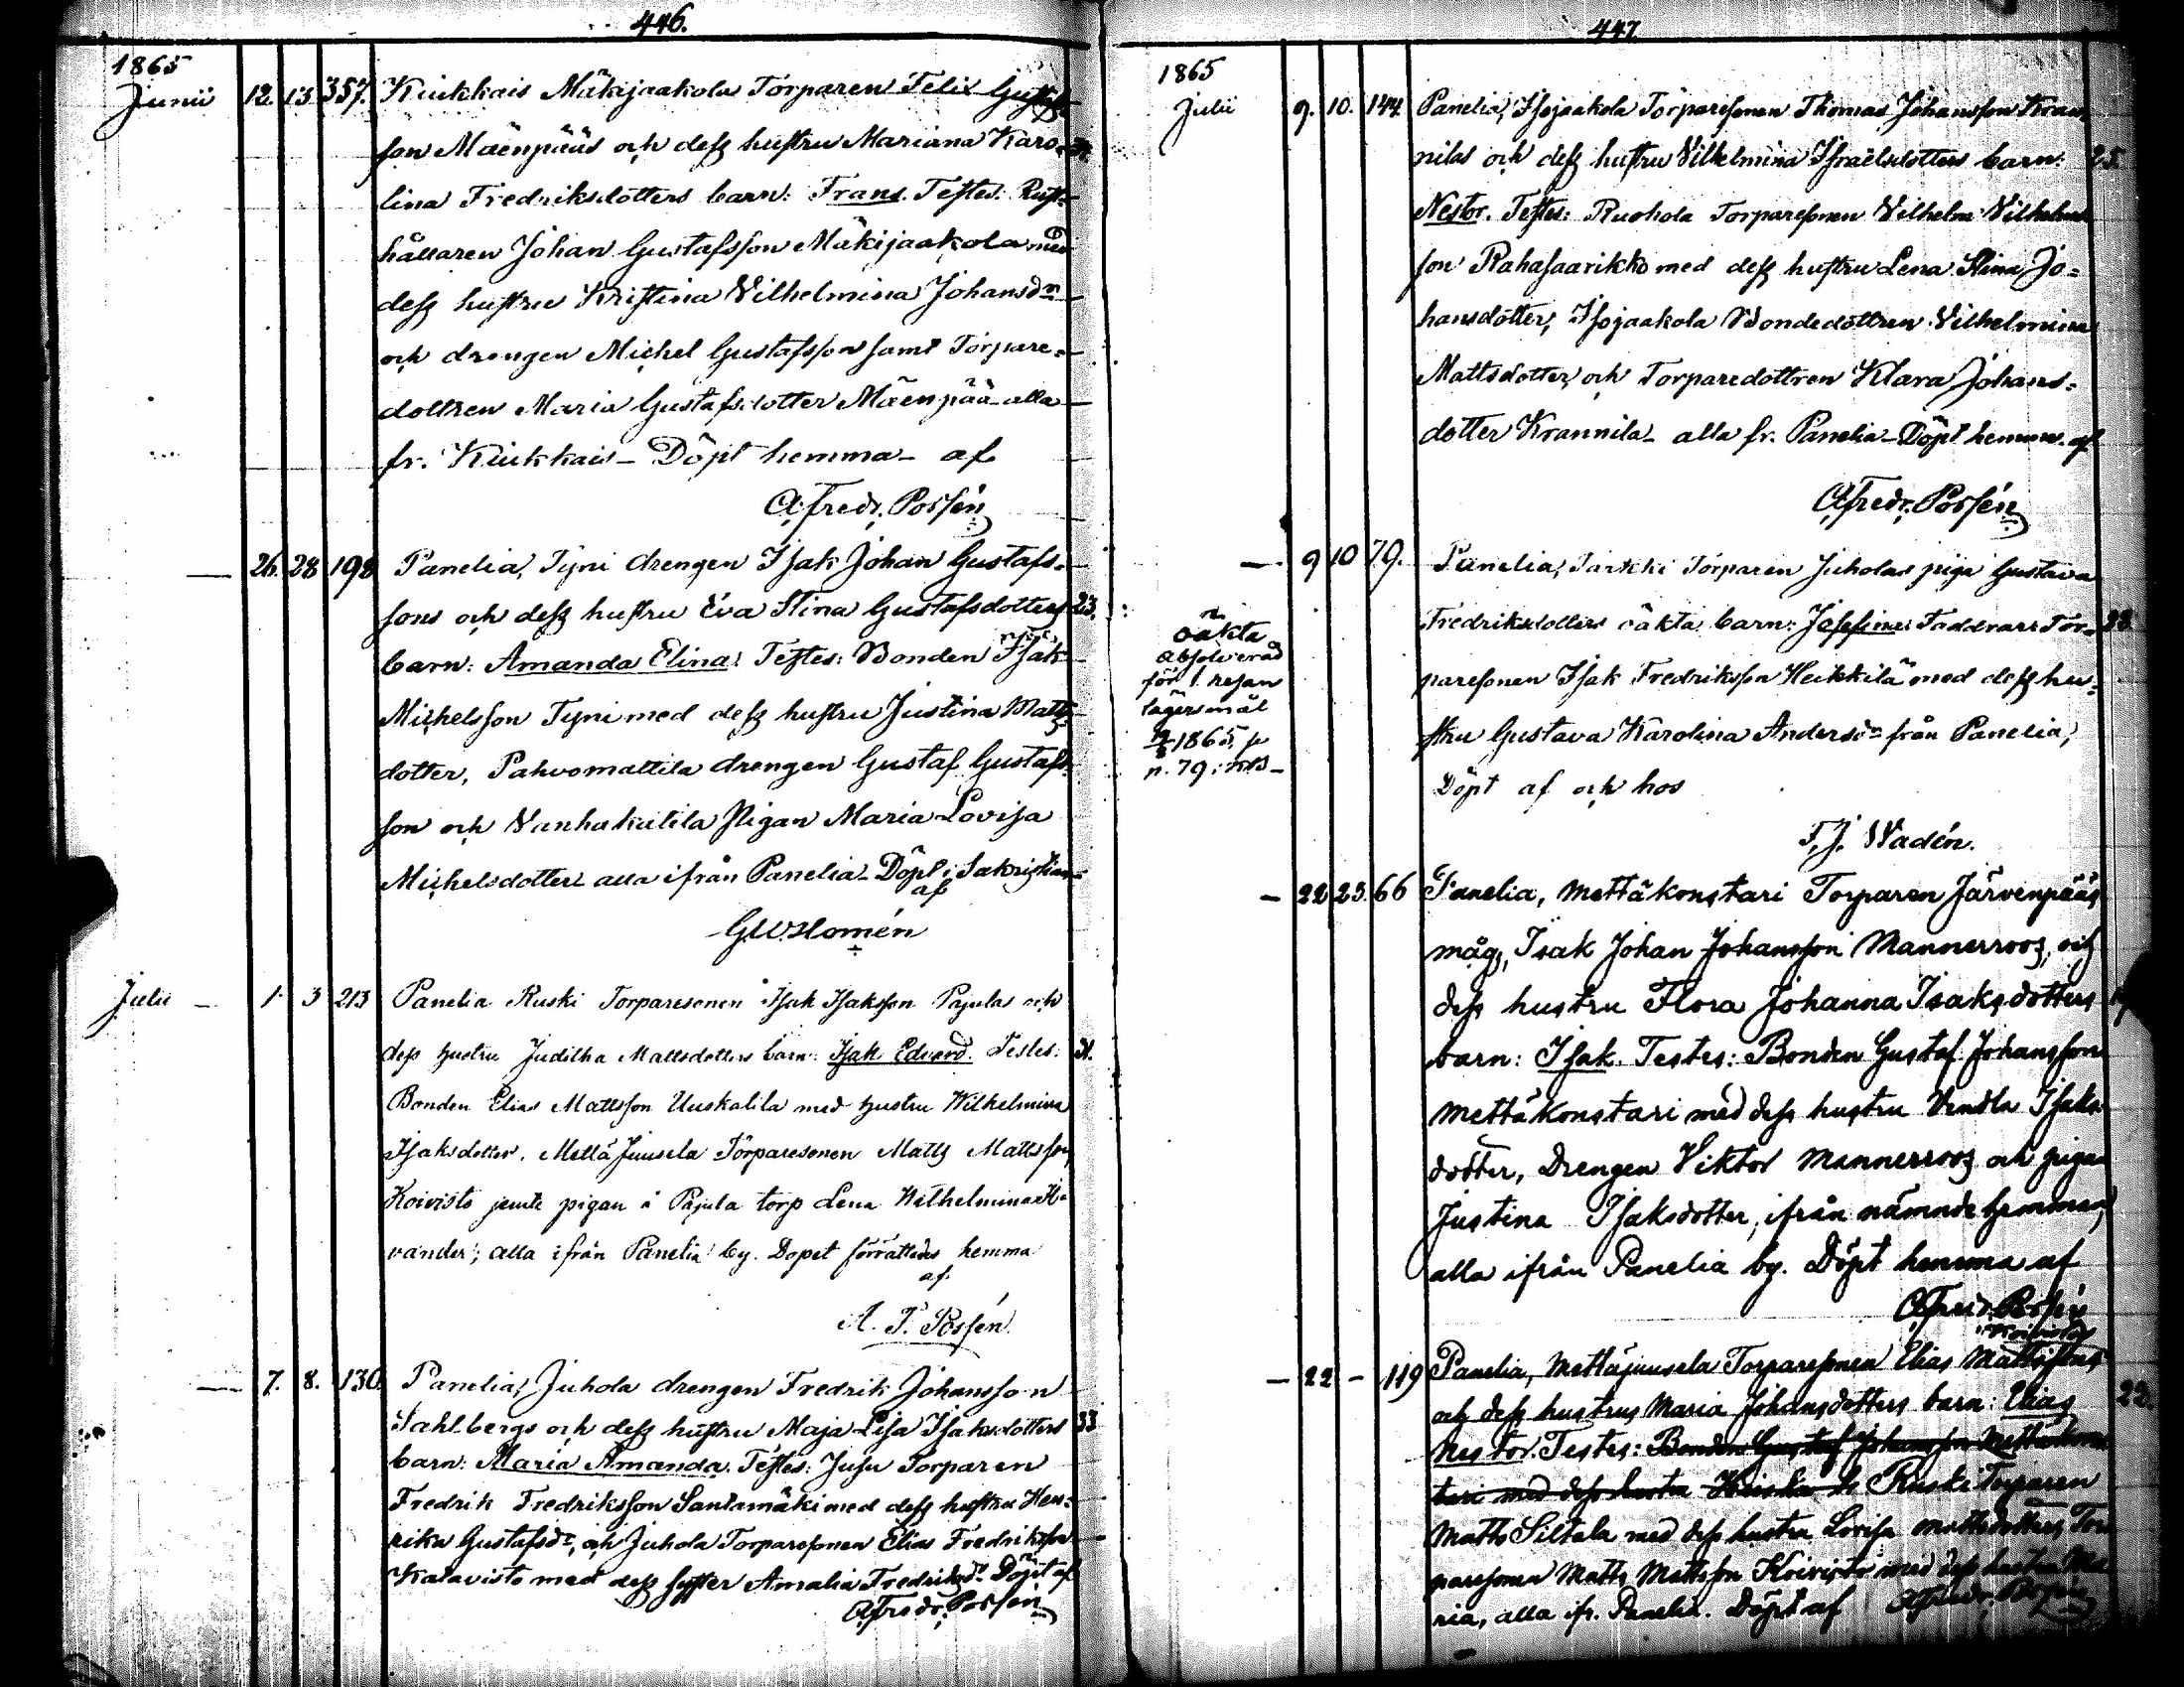 446.
1865
Junii 12. 13. 357. Kiukkais Mäkijaakola Torparen Felix Gustafs-
son Mäenpääs och dess hustru Mariana Karo-
lina Fredriksdotters barn: Frans. Testes: Rust-
hållaren Johan Gustafsson Mäkijaakola med
dess hustru Kristina Vilhelmina Johansdr
och drengen Michel Gustafsson samt Torpare-
dottren Maria Gustafsdotter Mäenpää alla
fr. Kiukkais – Döpt hemma – af
A. Fredr. Possén
— 26. 28 198 Panelia, Tyni drengen Isak Johan Gustafs-
sons och dess hustru Eva Stina Gustafsdotters 23.
barn: Amanda Elina: Testes: Bonden Isak
Michelsson Tyni med dess hustru Justina Matts-
dotter, Pahvomattila drengen Gustaf Gustafs-
son och Vanhakatila Pigan Maria Lovisa
Michelsdotter alla ifrån Panelia – Döpt i Sakristian
af
G. W. Homén
Julii – 1. 3 213 Panelia Ruski Torparesonen Isak Isaksson Pajulas och
dess hustru Juditha Mattsdotters barn: Isak Edvard. Testes: 31.
Bonden Elias Mattsson Uuskalila med hustru Wilhelmina
Isaksdotter, Mettä Juusela Torparesonen Matts Mattsson
Koivisto jemte pigan å Pajula torp Lena Wilhelmina
vander; alla ifrån Panelia by. Dopet förrättades hemma
af
A. F. Possén.
— 7. 8. 130. Panelia, Juhola drengen Fredrik Johansson
Sahlbergs och dess hustru Maja Lisa Isaksdotters 33
barn: Maria Amanda. Testes: Jusu Torparen
Fredrik Fredriksson Santamäki med dess hustru Hen-
rika Gustafsdr, och Juhola Torparesonen Elias Fredriksson
Katavisto med dess syster Amalia Fredriksdr. Döpt af
A. Fredr. Possén
447
1865
Julii 9. 10. 144. Panelia, Isojaakola Torparesonen Thomas Johansson Kran-
nilas och dess hustru Vilhelmina Israelsdotters barn: 25.
Nestor. Testes: Ruohola Torparesonen Vilhelm Vilhelms-
son Rahasaarikko med dess hustru Lena Stina Jo-
hansdotter, Isojaakola Bondedottren Vilhelmina
Mattsdotter, och Torparedottren Klara Johans-
dotter Krannila – alla fr. Panelia – Döpt hemma af
A. Fredr. Possén
— 9 10 79. Panelia, Tarkki Torparen Juholas piga Gustava
Fredriksdotters oäkta barn: Josefina: Faddrar: Tor- 33.
paresonen Isak Fredriksson Heikkilä med dess hu-
stru Gustava Karolina Andersdr från Panelia,
Döpt af och hos
F. J. Wadén.
oäkta
absolverad
för 1. resan
lägersmål
1865, p
n. 79. i KB –
— 22 23. 66 Panelia, Mettäkonstari Torparen Järvenpääs
måg, Isak Johan Johansson Mannerroos, och
dess hustru Flora Johanna Isaksdotters
barn: Isak. Testes: Bonden Gustaf Johansson
Mettäkonstari med dess hustru Vendla Isaks-
dotter, Drengen Viktor Mannerroos och pigan
Justina Isaksdotter, ifrån nämnde hemman,
alla ifrån Panelia by. Döpt hemma af
A. Fredr. Possén
Koivisto
— 22 – 119 Panelia, Mettäjuusela Torparesonen Elias Mattssons
och dess hustrus Maria Johansdotters barn: Elias 23.
Nestor. Testes: Bonden Gustaf Johansson Mettäkons-
tari med dess hustru Ruski Torparen
Matts Siltala med dess hustru Lovisa Mattsdotter, Tor-
paresonen Matts Mattsson Koivisto med dess hustru Ma-
ria, alla ifr. Panelia. Döpt af A. Fredr. Possén